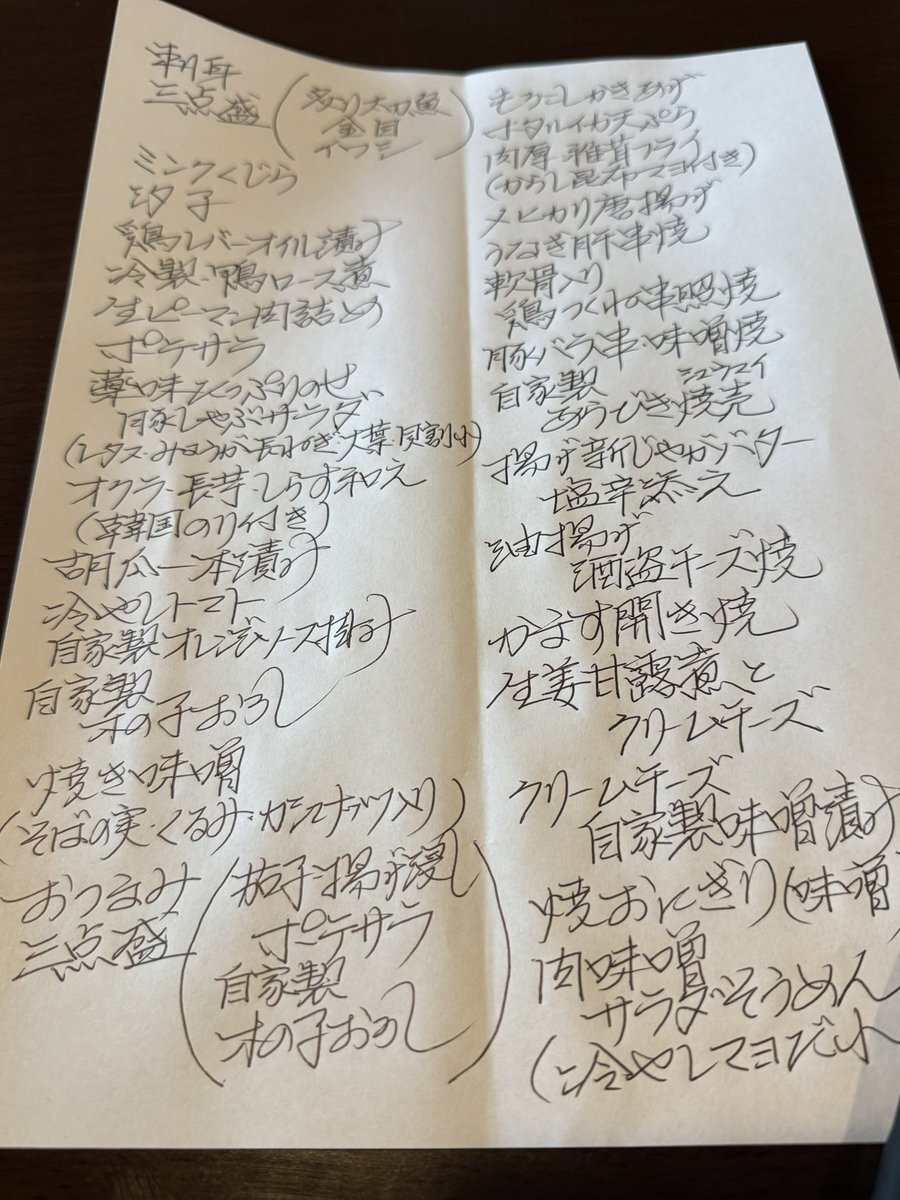 刺身
三点盛
(炙り太刀魚
金目
イワシ)
ミンクくじら
汐子
鶏レバーオイル漬け
冷製・鴨ロース煮
生ピーマン肉詰め
ポテサラ
薬味たっぷりのせ
豚しゃぶサラダ
(レタス・みょうが・長ねぎ・大葉・貝割れ)
オクラ・長芋・しらす和え
(韓国のり付き)
胡瓜一本漬け
冷やしトマト
自家製オレンジソース掛け
自家製
木の子おろし
焼き味噌
(そばの実・くるみ・カシューナッツ入り)
おつまみ
三点盛
(茄子揚げ浸し
ポテサラ
自家製
木の子おろし)
もろこしかきあげ
ホタルイカ天ぷら
肉厚椎茸フライ
(からし昆布マヨ付き)
メヒカリ唐揚げ
うなぎ肝串焼
軟骨入り
鶏つくね串照焼
豚バラ串・味噌焼
自家製
あらびき焼売
シュウマイ
揚げ新じゃがバター
塩辛添え
油揚げ
酒盗チーズ焼
かます開き焼
生姜甘露煮と
クリームチーズ
クリームチーズ
自家製味噌漬け
焼おにぎり(味噌
肉味噌
サラダそうめん
(冷やしマヨ